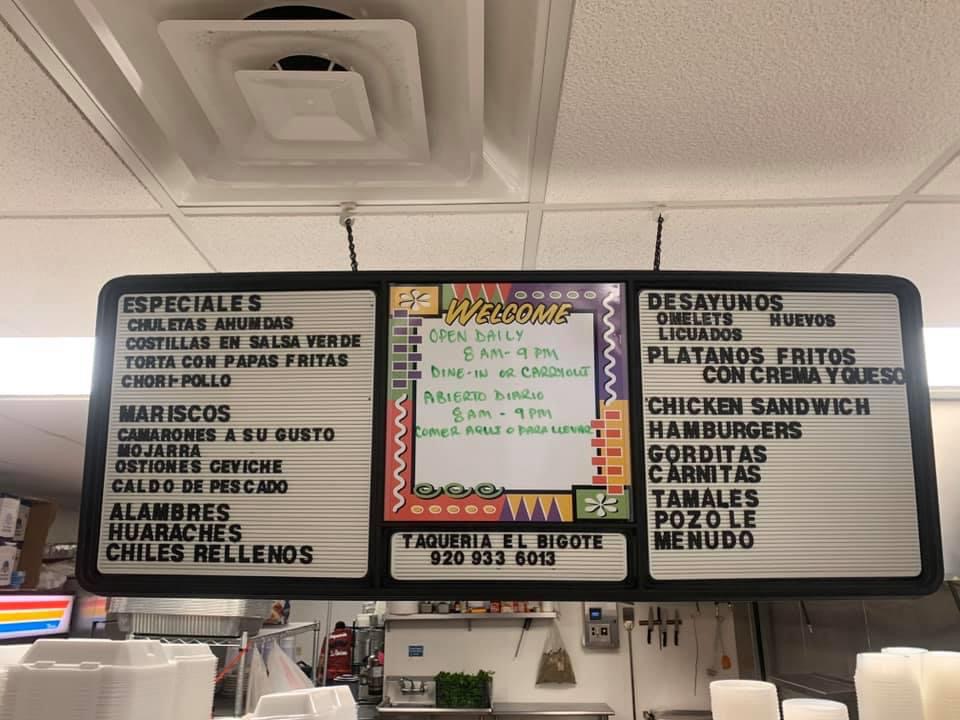 ESPECIALES
CHULETAS AHUMDAS
COSTILLAS EN SALSA VERDE
TORTA CON PAPAS FRITAS
CHORI-POLLO
MARISCOS
CAMARONES A SU GUSTO
MOJARRA
OSTIONES CEVICHE
CALDO DE PESCADO
ALAMBRES
HUARACHES
CHILES RELLENOS
WELCOME
OPEN DAILY
8 AM - 9 PM
DINE-IN OR CARRYOUT
ABIERTO DIARIO
8 AM - 9 PM
COMER AQUI O PARA LLEVAR
TAQUERIA EL BIGOTE
920 933 6013
DESAYUNOS
OMELETS HUEVOS
LICUADOS
PLATANOS FRITOS
CON CREMA Y QUESO
CHICKEN SANDWICH
HAMBURGERS
GORDITAS
CARNITAS
TAMALES
POZOLE
MENUDO